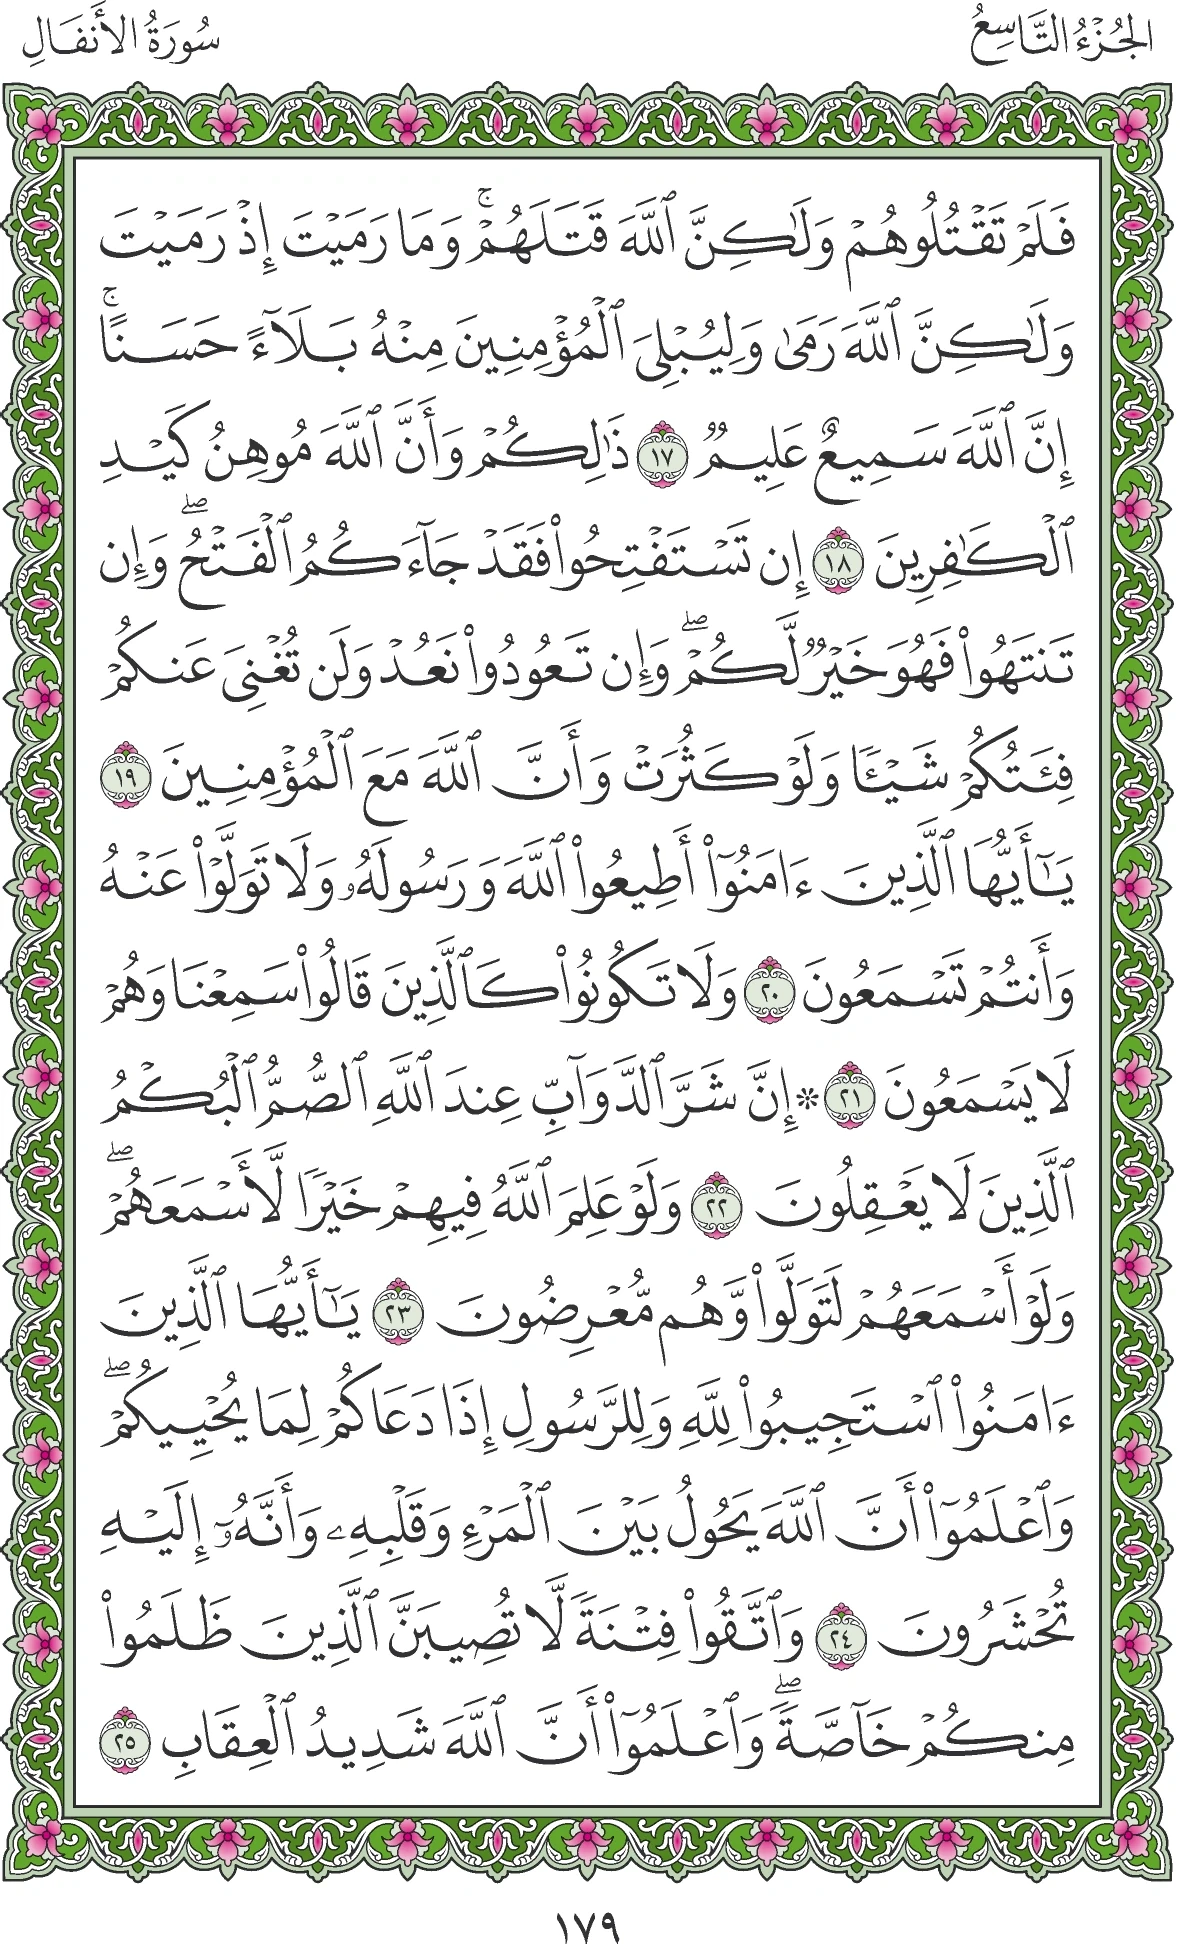 الجُزْءُ التَّاسِعُ
سُورَةُ الأَنفَالِ
فَلَمْ تَقْتُلُوهُمْ وَلَٰكِنَّ ٱللَّهَ قَتَلَهُمْۚ وَمَا رَمَيْتَ إِذْ رَمَيْتَ
وَلَٰكِنَّ ٱللَّهَ رَمَىٰ وَلِيُبْلِيَ ٱلْمُؤْمِنِينَ مِنْهُ بَلَآءً حَسَنًاۚ
إِنَّ ٱللَّهَ سَمِيعٌ عَلِيمٌ ١٧ ذَٰلِكُمْ وَأَنَّ ٱللَّهَ مُوهِنُ كَيْدِ
ٱلْكَٰفِرِينَ ١٨ إِن تَسْتَفْتِحُوا۟ فَقَدْ جَآءَكُمُ ٱلْفَتْحُۖ وَإِن
تَنتَهُوا۟ فَهُوَ خَيْرٌ لَّكُمْۖ وَإِن تَعُودُوا۟ نَعُدْ وَلَن تُغْنِيَ عَنكُمْ
فِئَتُكُمْ شَيْـًٔا وَلَوْ كَثُرَتْ وَأَنَّ ٱللَّهَ مَعَ ٱلْمُؤْمِنِينَ ١٩
يَٰٓأَيُّهَا ٱلَّذِينَ ءَامَنُوٓا۟ أَطِيعُوا۟ ٱللَّهَ وَرَسُولَهُۥ وَلَا تَوَلَّوْا۟ عَنْهُ
وَأَنتُمْ تَسْمَعُونَ ٢٠ وَلَا تَكُونُوا۟ كَٱلَّذِينَ قَالُوا۟ سَمِعْنَا وَهُمْ
لَا يَسْمَعُونَ ٢١ ۞ إِنَّ شَرَّ ٱلدَّوَآبِّ عِندَ ٱللَّهِ ٱلصُّمُّ ٱلْبُكْمُ
ٱلَّذِينَ لَا يَعْقِلُونَ ٢٢ وَلَوْ عَلِمَ ٱللَّهُ فِيهِمْ خَيْرًا لَّأَسْمَعَهُمْۖ
وَلَوْ أَسْمَعَهُمْ لَتَوَلَّوا۟ وَّهُم مُّعْرِضُونَ ٢٣ يَٰٓأَيُّهَا ٱلَّذِينَ
ءَامَنُوا۟ ٱسْتَجِيبُوا۟ لِلَّهِ وَلِلرَّسُولِ إِذَا دَعَاكُمْ لِمَا يُحْيِيكُمْۖ
وَٱعْلَمُوٓا۟ أَنَّ ٱللَّهَ يَحُولُ بَيْنَ ٱلْمَرْءِ وَقَلْبِهِۦ وَأَنَّهُۥٓ إِلَيْهِ
تُحْشَرُونَ ٢٤ وَٱتَّقُوا۟ فِتْنَةً لَّا تُصِيبَنَّ ٱلَّذِينَ ظَلَمُوا۟
مِنكُمْ خَآصَّةًۖ وَٱعْلَمُوٓا۟ أَنَّ ٱللَّهَ شَدِيدُ ٱلْعِقَابِ ٢٥
١٧٩